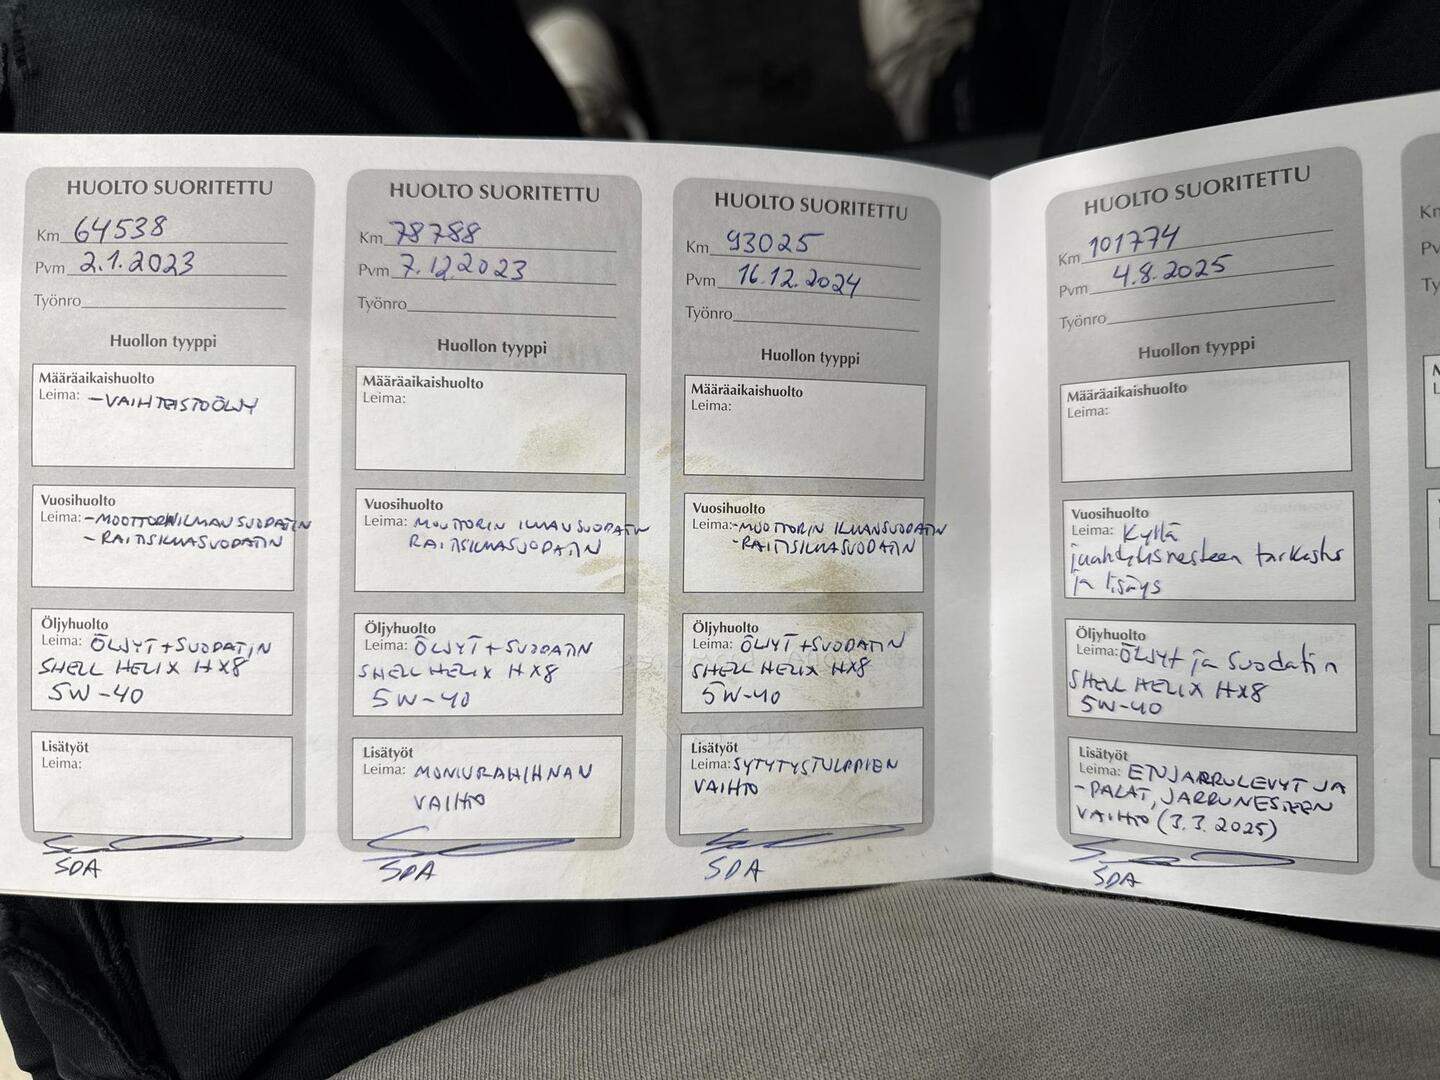 HUOLTO SUORITETTU
Km 64538
Pvm 2.1.2023
Työnro
Huollon tyyppi
Määräaikaishuolto
Leima: -VAIHTEISTOÖLJY
Vuosihuolto
Leima: -MOOTTORINILMANSUODATIN
-RAITISILMASUODATIN
Öljyhuolto
Leima: ÖLJYT+SUODATIN
SHELL HELIX HX8
5W-40
Lisätyöt
Leima:
SDA
HUOLTO SUORITETTU
Km 78788
Pvm 7.12.2023
Työnro
Huollon tyyppi
Määräaikaishuolto
Leima:
Vuosihuolto
Leima: MOOTTORIN ILMANSUODATIN
RAITISILMASUODATIN
Öljyhuolto
Leima: ÖLJYT+SUODATIN
SHELL HELIX HX8
5W-40
Lisätyöt
Leima: MONIURAHIHNAN
VAIHTO
SDA
HUOLTO SUORITETTU
Km 93025
Pvm 16.12.2024
Työnro
Huollon tyyppi
Määräaikaishuolto
Leima:
Vuosihuolto
Leima:-MOOTTORIN ILMANSUODATIN
-RAITISILMASUODATIN
Öljyhuolto
Leima: ÖLJYT+SUODATIN
SHELL HELIX HX8
5W-40
Lisätyöt
Leima: SYTYTYSTULPPIEN
VAIHTO
SDA
HUOLTO SUORITETTU
Km 101774
Pvm 4.8.2025
Työnro
Huollon tyyppi
Määräaikaishuolto
Leima:
Vuosihuolto
Leima: Kyllä
jäähdytysnesteen tarkastus
ja lisäys
Öljyhuolto
Leima: Öljyt ja Suodatin
SHELL HELIX HX8
5W-40
Lisätyöt
Leima: ETUJARRULEVYT JA
-PALAT, JARRUNESTEEN
VAIHTO (3.3.2025)
SDA